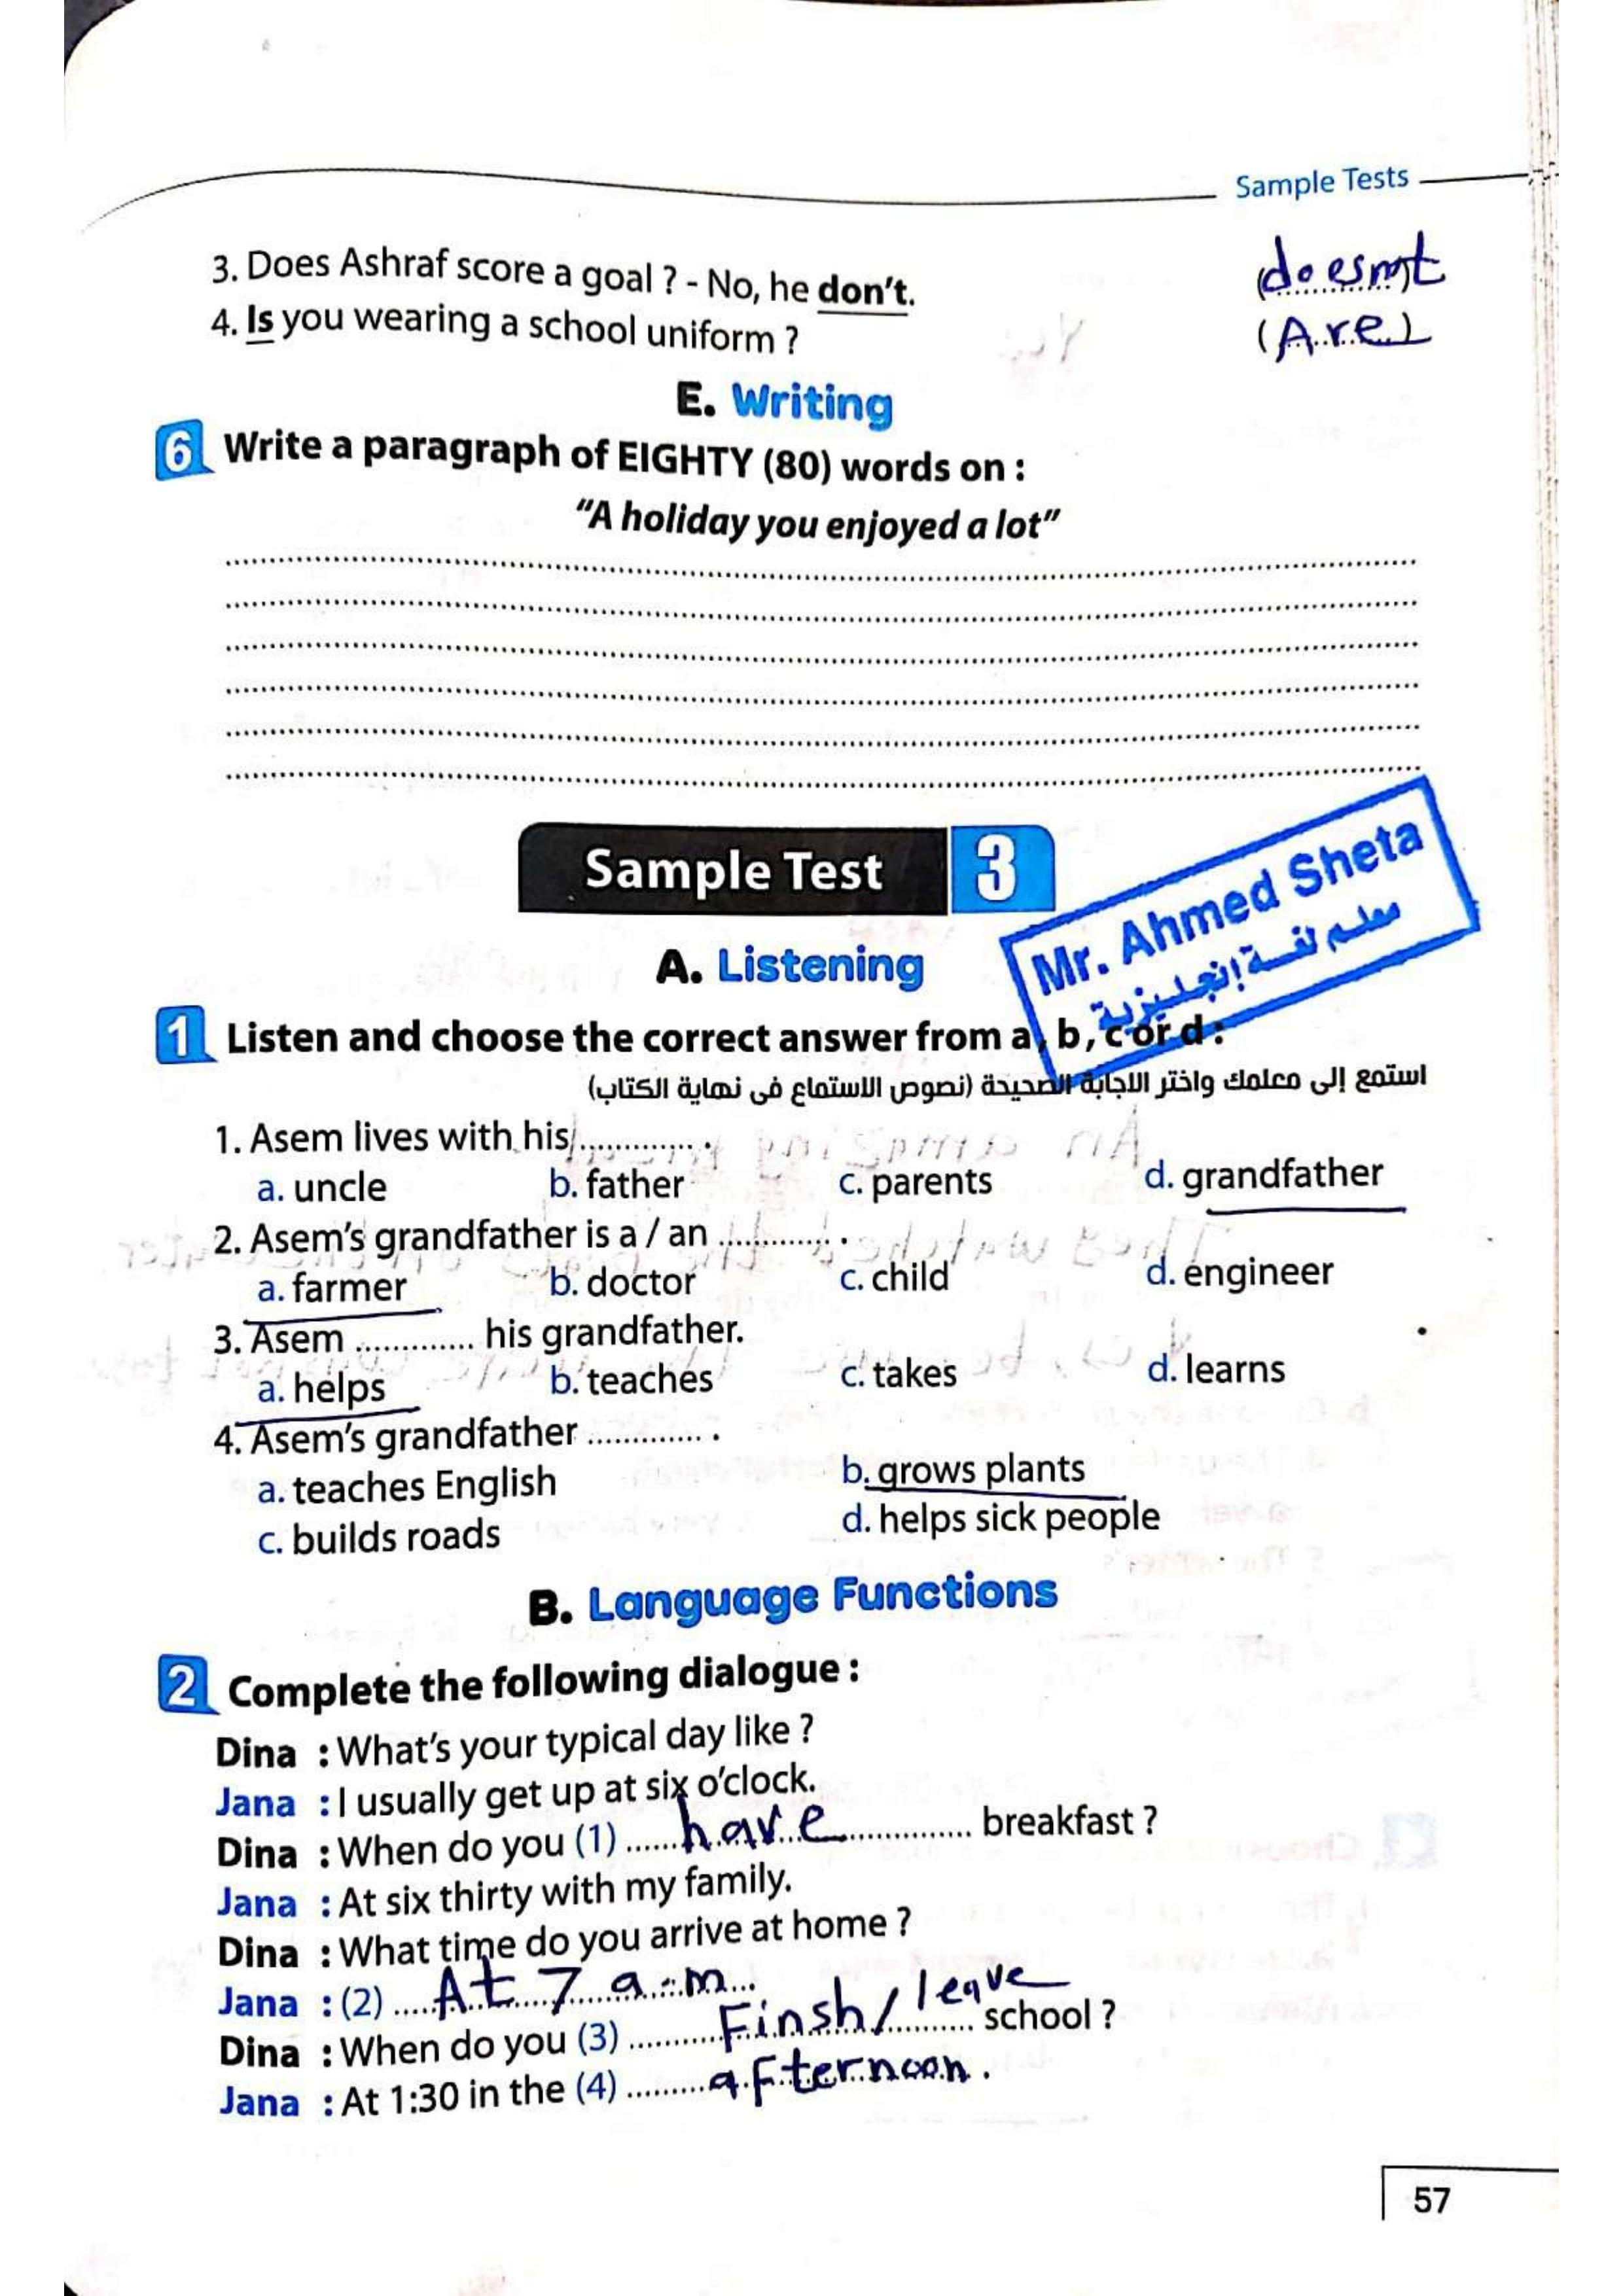 Sample Tests
3. Does Ashraf score a goal ? - No, he don't. (doesn't)
4. Is you wearing a school uniform ? (Are)
E. Writing
6 Write a paragraph of EIGHTY (80) words on :
"A holiday you enjoyed a lot"
Sample Test 3
Mr. Ahmed Sheta
معلم لغة إنجليزية
A. Listening
1 Listen and choose the correct answer from a, b, c or d :
استمع إلى معلمك واختر الاجابة الصحيحة (نصوص الاستماع فى نهاية الكتاب)
1. Asem lives with his ............. .
a. uncle b. father c. parents d. grandfather
2. Asem's grandfather is a / an ............. .
a. farmer b. doctor c. child d. engineer
3. Asem ............. his grandfather.
a. helps b. teaches c. takes d. learns
4. Asem's grandfather ............. .
a. teaches English b. grows plants
c. builds roads d. helps sick people
B. Language Functions
2 Complete the following dialogue :
Dina : What's your typical day like ?
Jana : I usually get up at six o'clock.
Dina : When do you (1) ...... have ............... breakfast ?
Jana : At six thirty with my family.
Dina : What time do you arrive at home ?
Jana : (2) ..... At 7 a.m...
Dina : When do you (3) .......... Finsh / leave .......... school ?
Jana : At 1:30 in the (4) ......... afternoon .
57